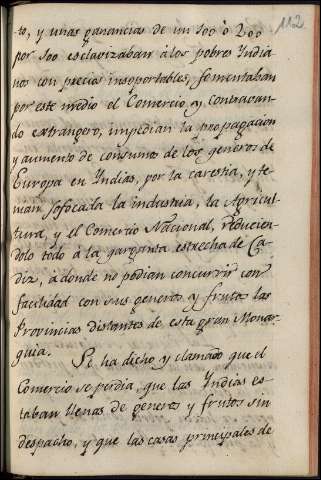 112
to, y unas ganancias de un 100 ò 200
por 100 esclavizaban à los pobres Yndia-
nos con precios insoportables, fomentaban
por este medio el Comercio y contravan-
do extrangero, impedian la propagacion
y aumento de consumo de los generos de
Europa en Yndias, por la carestia, y te-
nian sofocada la industria, la Agricul-
tura, y el Comercio Nacional, reducien-
dolo todo à la garganta estrecha de Ca-
diz, à donde no podian concurrir con
facilidad con sus generos y frutos las
Provincias distantes de esta gran Monar-
quia.
Se ha dicho y clamado que el
Comercio se perdia, que las Yndias es-
taban llenas de generos y frutos sin
despacho, y que las casas principales de